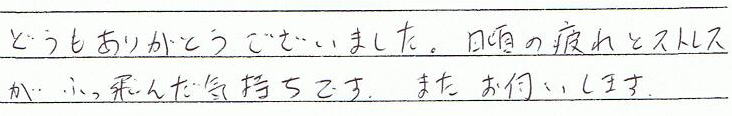 どうもありがとうございました。日頃の疲れとストレス
がふっ飛んだ気持ちです. またお付いします.